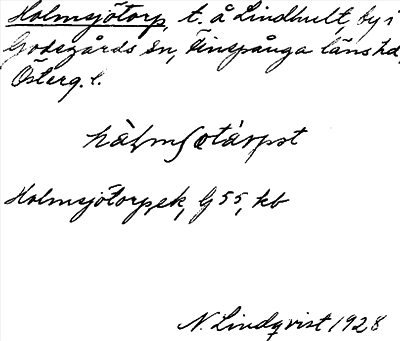 Holmsjötorp, t. å Lindhult, by i
Godegårds sn, Finspånga läns hd,
Österg. l.
Holmsjötorp, ek, G 55, kb
N. Lindqvist 1928